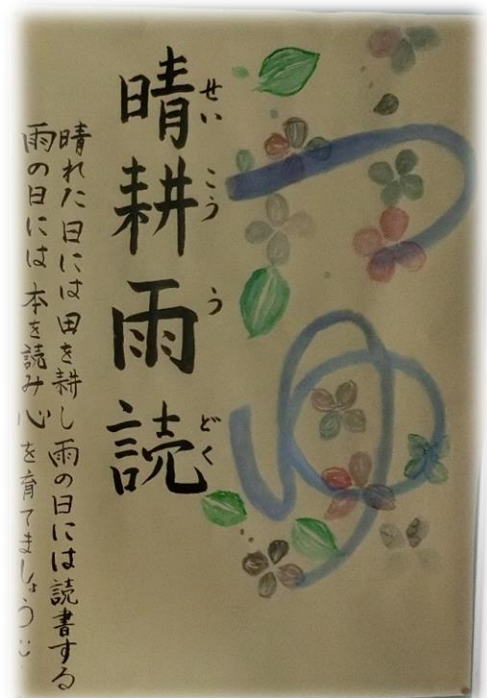 つゆ
晴耕雨読
せいこううどく
晴れた日には田を耕し雨の日には読書する
雨の日には本を読み心を育てましょう:)